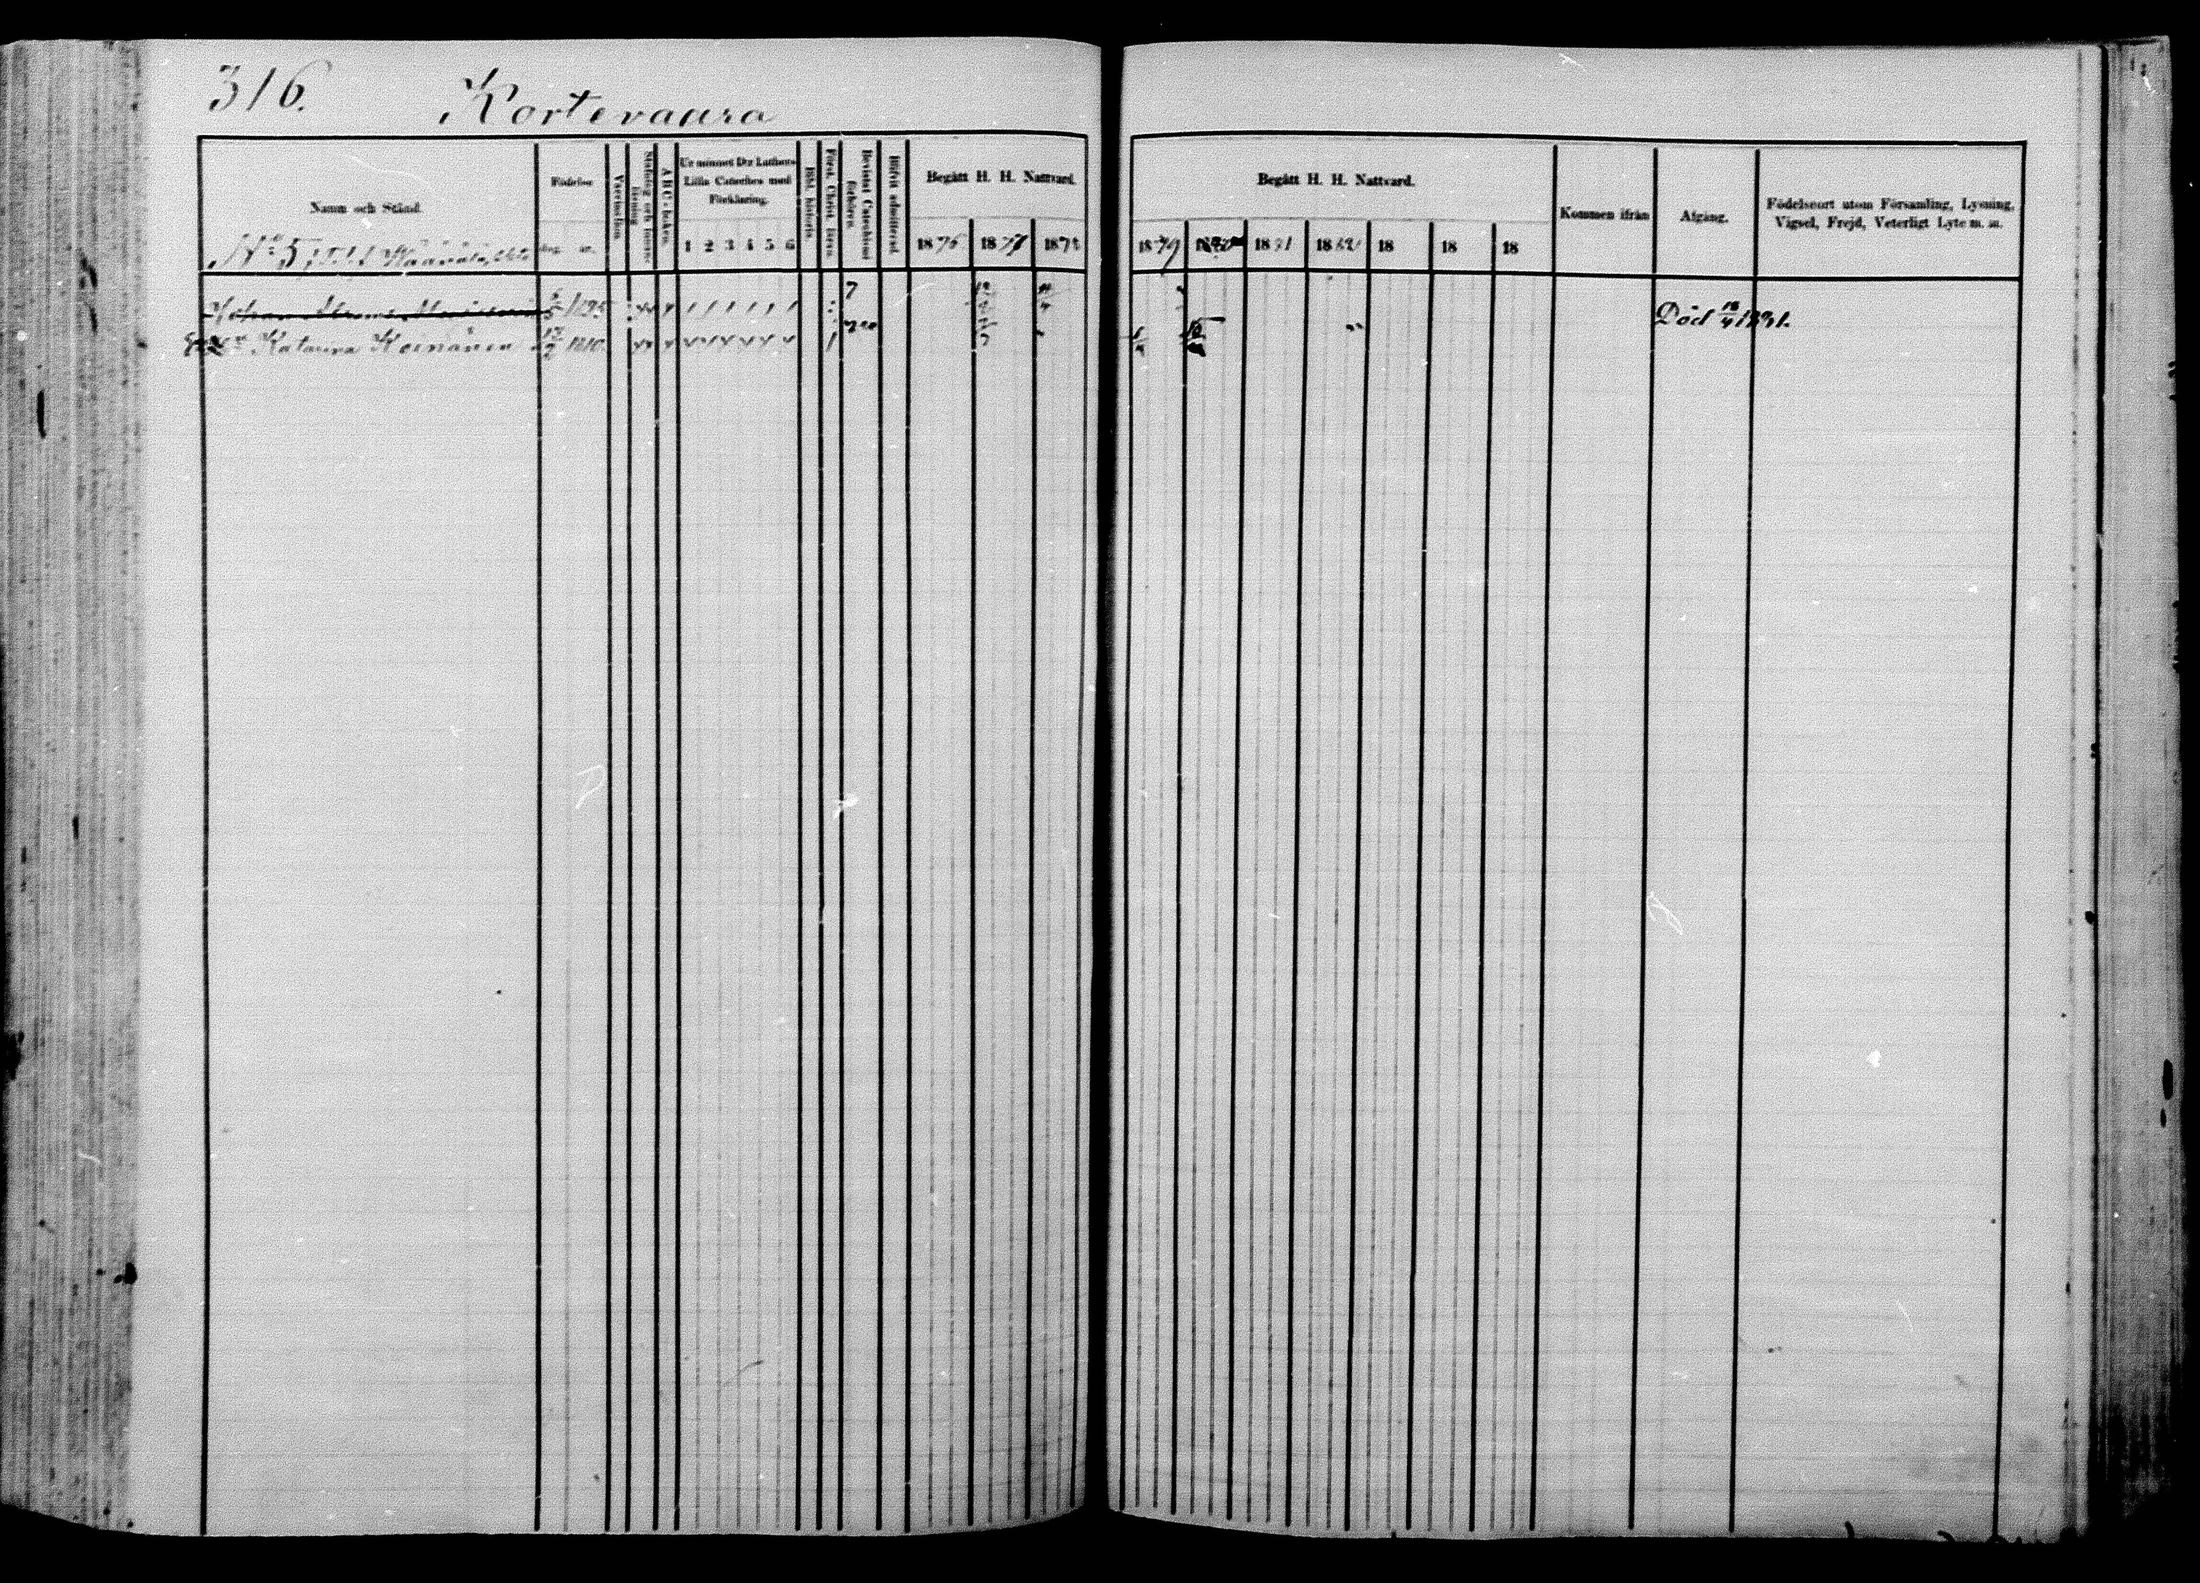 316.
Kortevaara
Namn och Stånd.
Födelse
dag. år.
Vaccination.
Stafning och Innanläsning.
A B C-boken.
Ur minnet D:r Luthers Lilla Cateches med Förklaring.
1 2 3 4 5 6
Bibl. historia.
Först. Christ. läran.
Bevistat Catechismi förhören.
Blifvit admitterad.
Begått H. H. Nattvard.
1876 1877 1878
Begått H. H. Nattvard.
1879 1880 1881 1882 18 18 18
Kommen ifrån
Afgång.
Födelseort utom Församling, Lysning, Vigsel, Frejd, Veterligt Lyte m. m.
N:o 5,
Johan 1795 Död 18/4 1881.
Katarina Keinänen 17/7 1810.